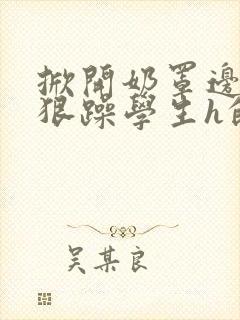 掀開奶罩邊
狠躁學生h
吳某良